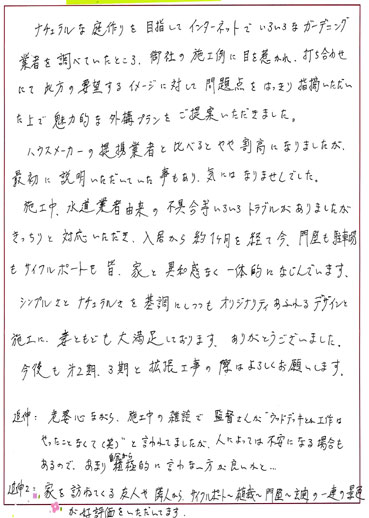 ナチュラルな庭作りを目指してインターネットでいろいろなガーデニング
業者を調べていたところ、御社の施工例に目を惹かれ、打ち合わせ
にて此方の要望するイメージに対して問題点をはっきり指摘いただい
た上で魅力的な外構プランをご提案いただきました。
ハウスメーカーの提携業者と比べるとやや割高になりましたが、
最初に説明いただいていた事もあり、気にはなりませんでした。
施工中、水道業者由来の不具合等いろいろトラブルがありましたが
きっちりと対応いただき、入居から約1ケ月を経て今、門屋も駐車場
もサイクルポートも皆、家と異和感なく一体的になじんでいます。
シンプルさとナチュラルさを基調にしつつもオリジナリティあふれるデザインと
施工に、妻ともども大満足しております。ありがとうございました。
今後も第2期、3期と拡張工事の際はよろしくお願いします。
追伸:老婆心ながら、施工中の雑談で監督さんが"ウッドデッキとか工作は
やったことなくて(笑)"と言われてましたが、人によっては不安になる場合も
あるので、あまり積極的に言わない方が良いかと…
追伸2:家を訪ねてくる友人や隣人から、サイクルポート〜植栽〜門屋〜玄関の一連の景色
が好評価をいただいてます.